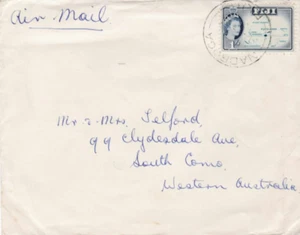 Air Mail
FIJI
Mr & Mrs. Telford.
99 Clydesdale Ave,
South Como.
Western Australia